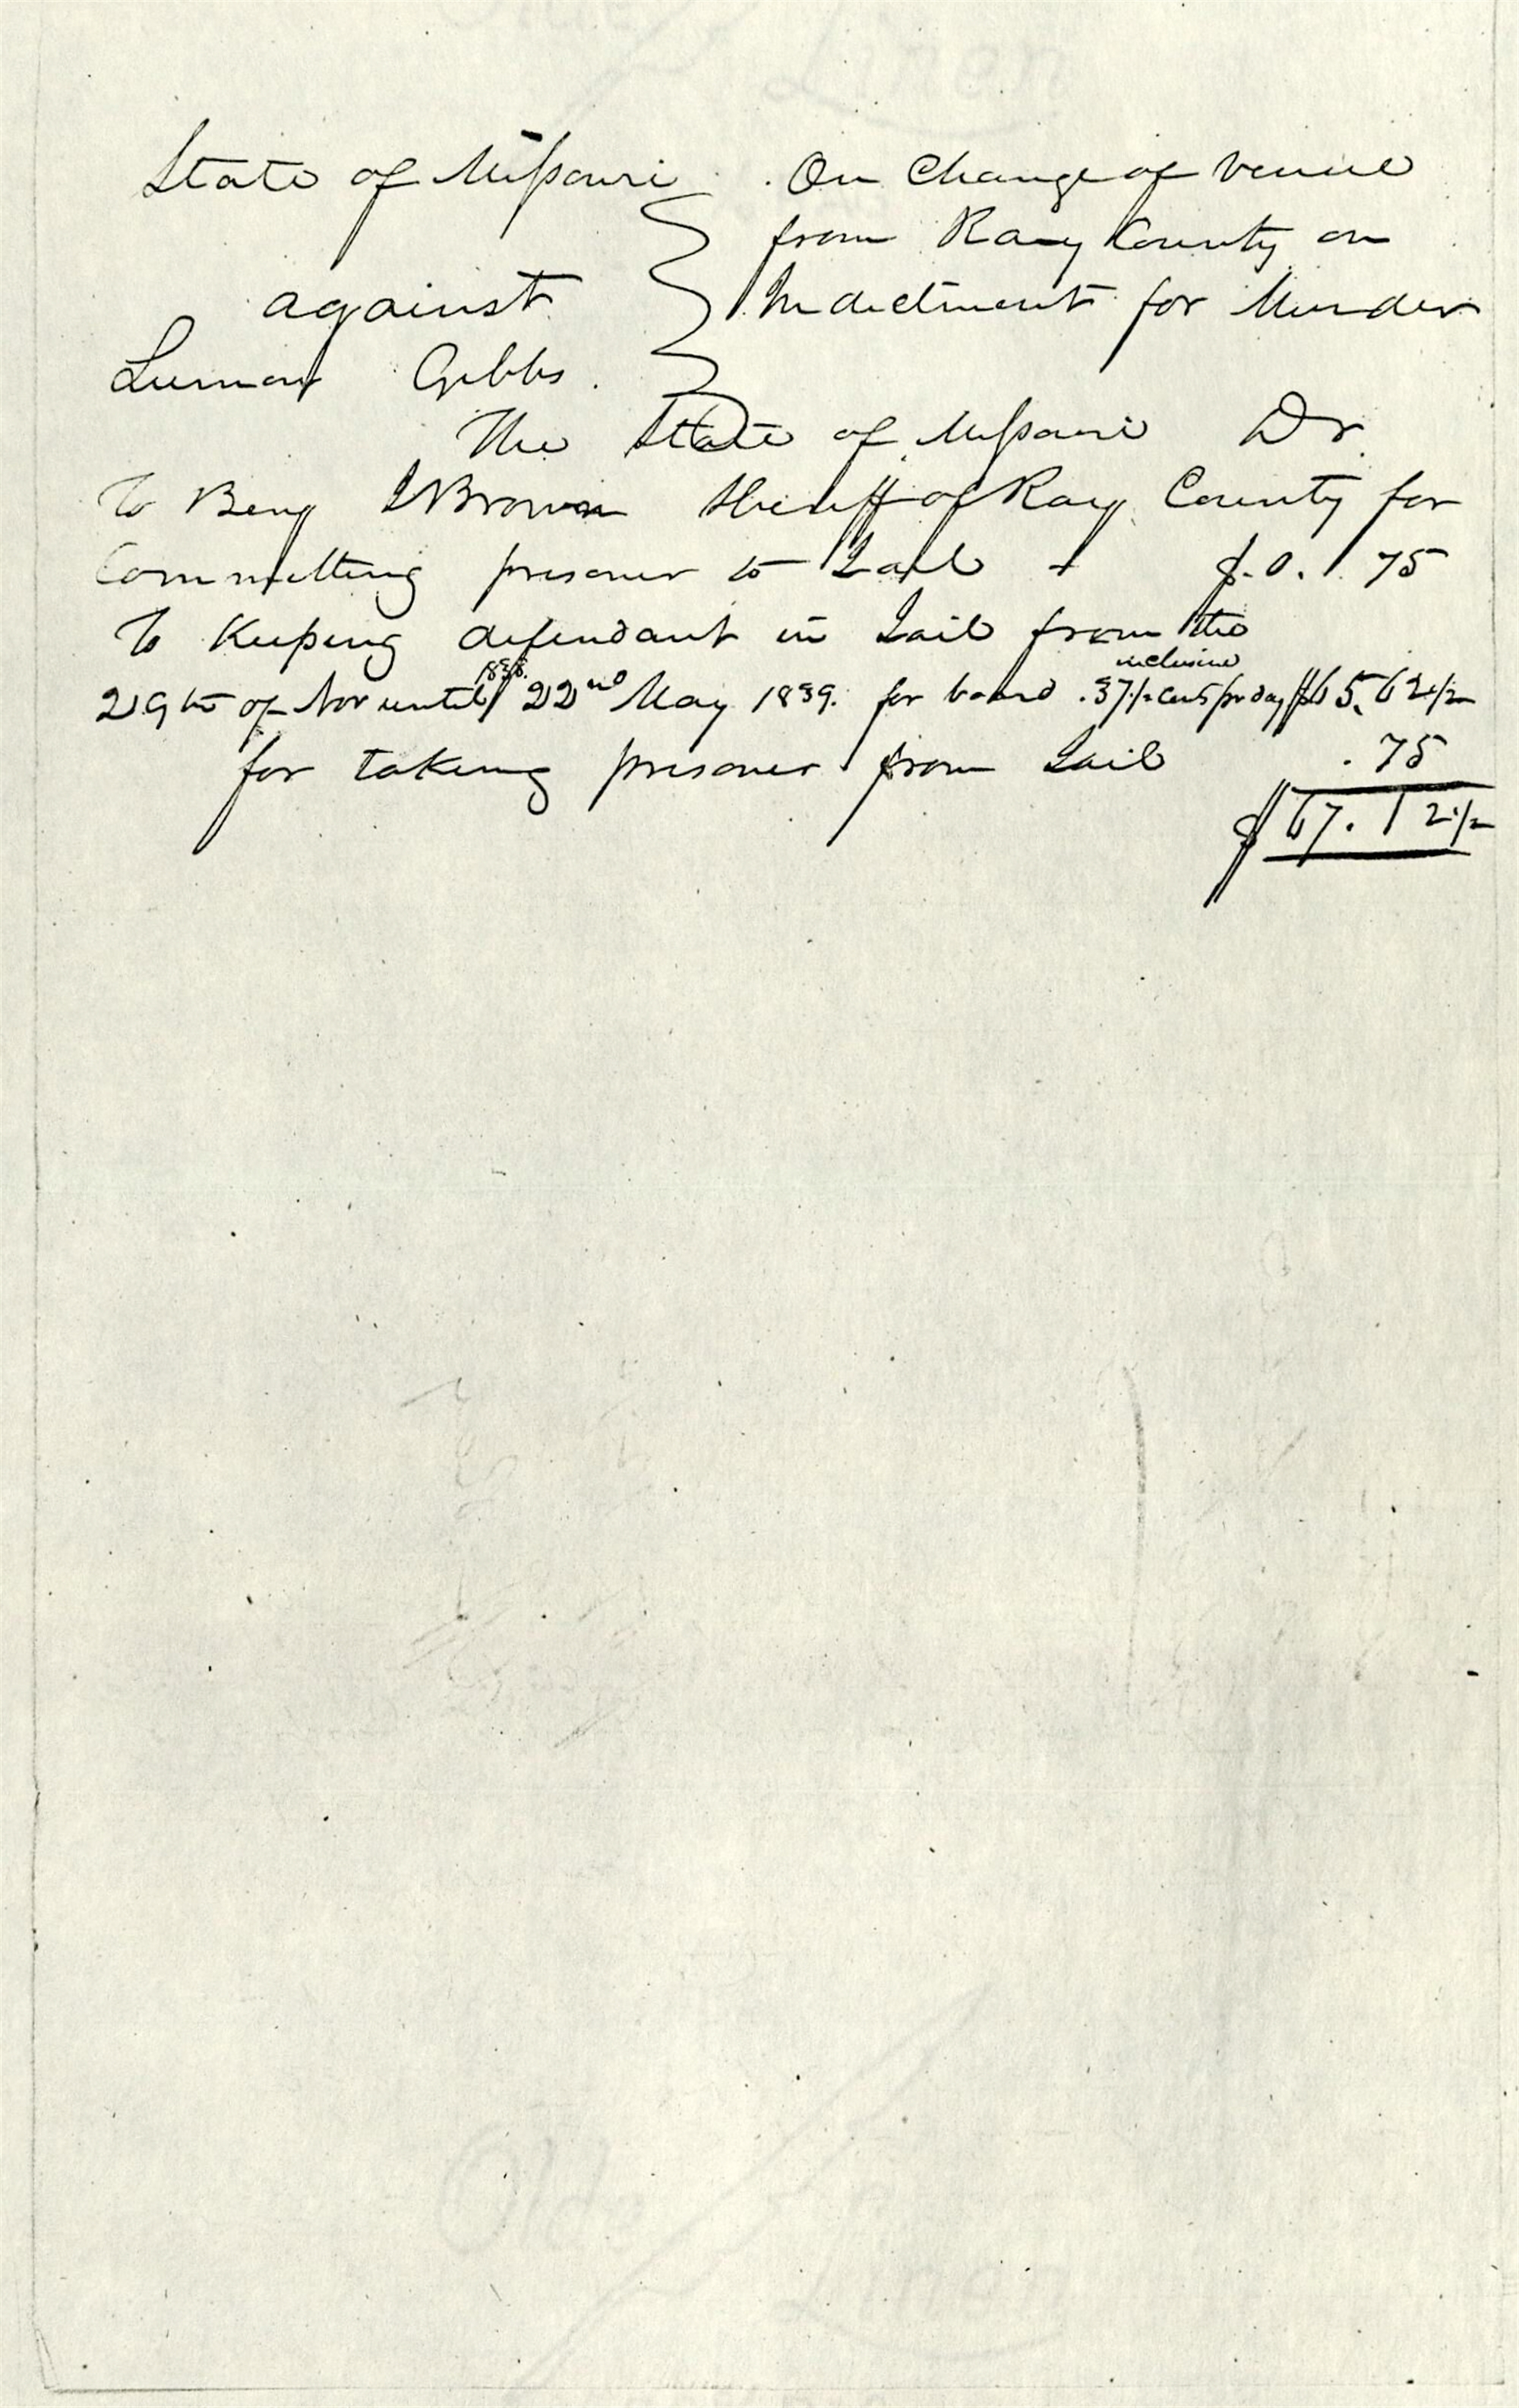 State of Missouri . On Change of venue
from Ray County on
against Indictment for Murder
Luman Gibbs.
The State of Missouri Dr.
To Benj J Brown Sheriff of Ray County for
Committing prisoner to Jail - $.0.75
To Keeping defendant in Jail from the
29th of Nov 1838. until 22nd May 1839. for board inclusive .37½ cents pr day $65.62½
for taking prisoner from Jail .75
$67.12½